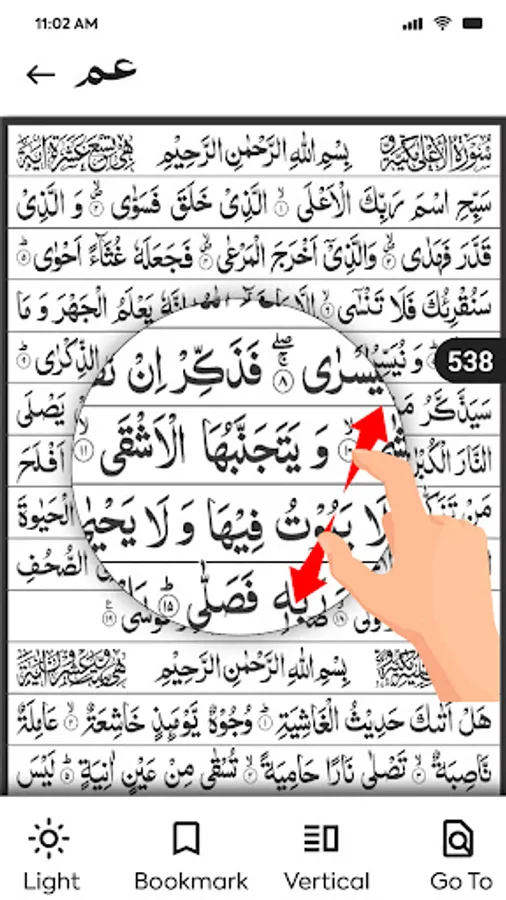 11:02 AM
عم
سُوْرَةُ الْاَعْلٰى مَكِّيَّةٌ بِسْمِ اللّٰهِ الرَّحْمٰنِ الرَّحِيْمِ هِيَ تِسْعَ عَشْرَةَ اٰيَةً
سَبِّحِ اسْمَ رَبِّكَ الْاَعْلَى ۙ﴿۱﴾ الَّذِىْ خَلَقَ فَسَوّٰى ۙ﴿۲﴾ وَ الَّذِىْ
قَدَّرَ فَهَدٰى ۙ﴿۳﴾ وَالَّذِىْۤ اَخْرَجَ الْمَرْعٰى ۙ﴿۴﴾ فَجَعَلَهٗ غُثَآءً اَحْوٰى ؕ﴿۵﴾
سَنُقْرِئُكَ فَلَا تَنْسٰٓى ۙ﴿۶﴾ اِنَّهٗ يَعْلَمُ الْجَهْرَ وَ مَا
وَ نُيَسِّرُكَ الذِّكْرٰى ؕ﴿۹﴾
538
يُسْرٰى ۚۖ﴿۸﴾ فَذَكِّرْ اِنْ
سَيَذَّكَّرُ
وَ يَتَجَنَّبُهَا الْاَشْقَى ۙ﴿۱۱﴾ يَصْلَى
النَّارَ الْكُبْرٰى اَفْلَحَ
لَا يَمُوْتُ فِيْهَا وَ لَا يَحْيٰى
مَنْ تَزَكّٰى الْحَيٰوةَ
الصُّحُفِ
رَبِّهٖ فَصَلّٰى ؕ﴿۱۵﴾
بِسْمِ اللّٰهِ الرَّحْمٰنِ الرَّحِيْمِ
هَلْ اَتٰىكَ حَدِيْثُ الْغَاشِيَةِ ؕ﴿۱﴾ وُجُوْهٌ يَّوْمَئِذٍ خَاشِعَةٌ ۙ﴿۲﴾ عَامِلَةٌ
نَّاصِبَةٌ ۙ﴿۳﴾ تَصْلٰى نَارًا حَامِيَةً ۙ﴿۴﴾ تُسْقٰى مِنْ عَيْنٍ اٰنِيَةٍ ؕ﴿۵﴾ لَيْسَ
Light
Bookmark
Vertical
Go To